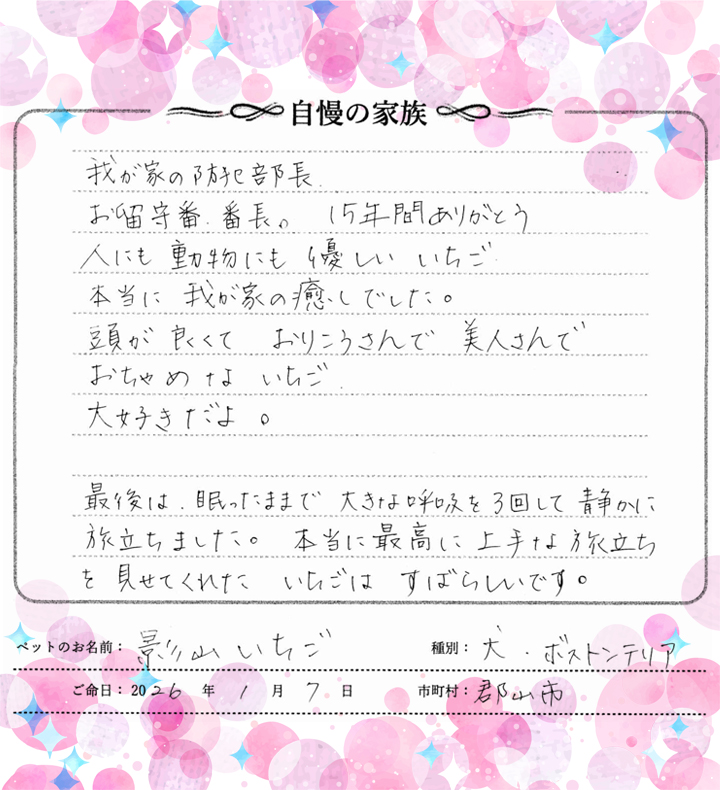 自慢の家族
我が家の防犯部長
お留守番、番長。 15年間ありがとう
人にも動物にも優しい いちご
本当に 我が家の癒しでした。
頭が良くて おりこうさんで 美人さんで
おちゃめな いちご
大好きだよ。
最後は、眠ったままで 大きな呼吸を3回して 静かに
旅立ちました。 本当に最高に上手な旅立ち
を見せてくれた いちごは すばらしいです。
ペットのお名前： 影山いちご 種別： 犬・ボストンテリア
ご命日： 2026年 1月 7日 市町村： 郡山市